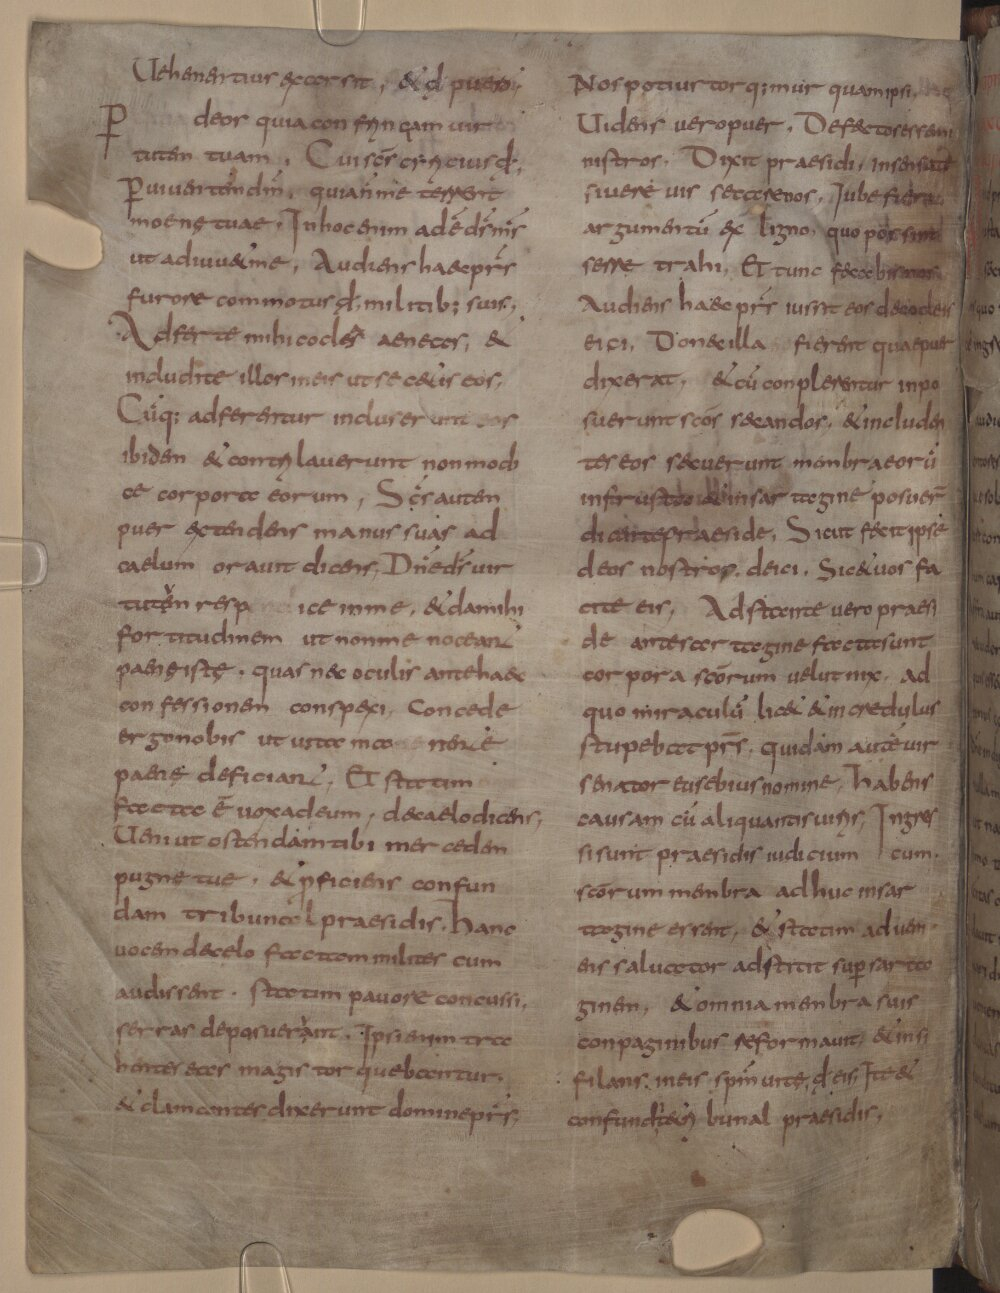 Uehenentius excersit, & d̄ puero.
P deor quia confrin çam uir
tutem tuam. Cui sc̄s cyricius d̄,
P uiuentem dm̄, quia ń me terrent
moene tuae. In hoc enim adē ds̄ ms̄
ut adiuu& me, Audiens haec pr̄s
furore commotus d̄. militib; suis.
Adferte mihi cocles aeneas, &
includite illos in eis ut secetis eos.
Cūq; adferentur incluserunt eos
ibidem & contrilauerunt nonmoda
ce corpora eorum, Sc̄s autem
puer extendens manus suas ad
caelum orauit dicens, Dn̄e ds̄ uir
tutem resp ice in me, & da mihi
fortitudinem ut non me noceant
paene iste. quas nec oculis ante hac
confessionem conspexi, Concede
ergo nobis ut uita
paene deficiant, Et statim
facta ē uox ad eum, de caelo dicens,
Ueni ut ostendam tibi mercedem
pugne tue, & p̄ficiens confun
dam tribunal praesidis. Hanc
uocem de celo factam milites cum
audissent. statim pauore concussi,
serras deposuerunt. Ipsi enim tra
hentes eas magis torquebantur,
& clamantes dixerunt domine pr̄s,
Nos potius torq;mur quam ipsi.
Uidens uero puer, Defectos essem
nistros, Dixit praesidi, insensate
si uere uis secare nos, Iube fieri
argumentū ex ligno, quo possint
serre trahi, Et tunc seca bis nos
Audiens haec pr̄s iussit eos de coclas
eici, Donec illa fierent quae puer
dixerat, & cū conplerentur inpo
suerunt sc̄os secandos, & includen
tes eos secuerunt membra eorū
in frusta & in sartagine posuer̄
dicante praeside, Sicut fecit ipse
deos nostros. deici. Sic & uos fa
cite eis, Adstante uero praesi
de ante sartagine facta sunt
corpora sc̄orum uelut nix, ad
quo miraculū lic& & incredulus
stupebat pr̄s. quidam autē uir
senator eusebius nomine, habens
causam cū aliquantis uiris, Ingres
si sunt praesidis iudicium cum.
sc̄orum membra adhuc in sar
tagine essent, & statim adueni
ens saluator adstitit super sarta
ginem, & omnia membra suis
conpaginibus reformauit, & insi
filans in eis spm̄ uite, d̄ eis, Ite &
confundite bunal praesidis,